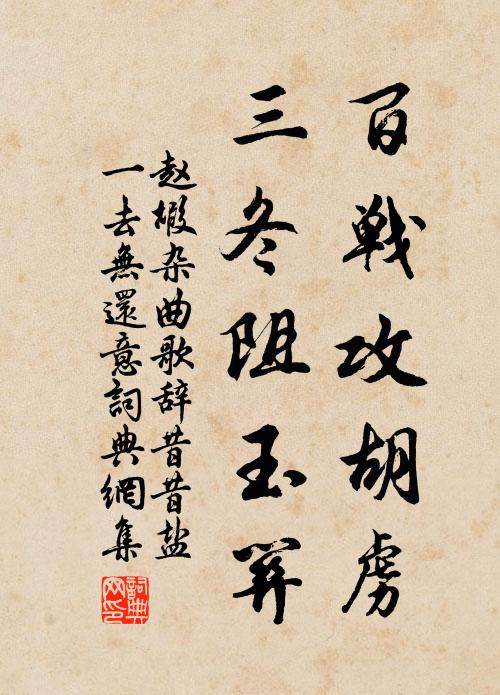 百戦攻胡虜
三冬阻玉關
赵嘏杂曲歌辞昔昔盐
一去無還意詞典網集
詞典
网印